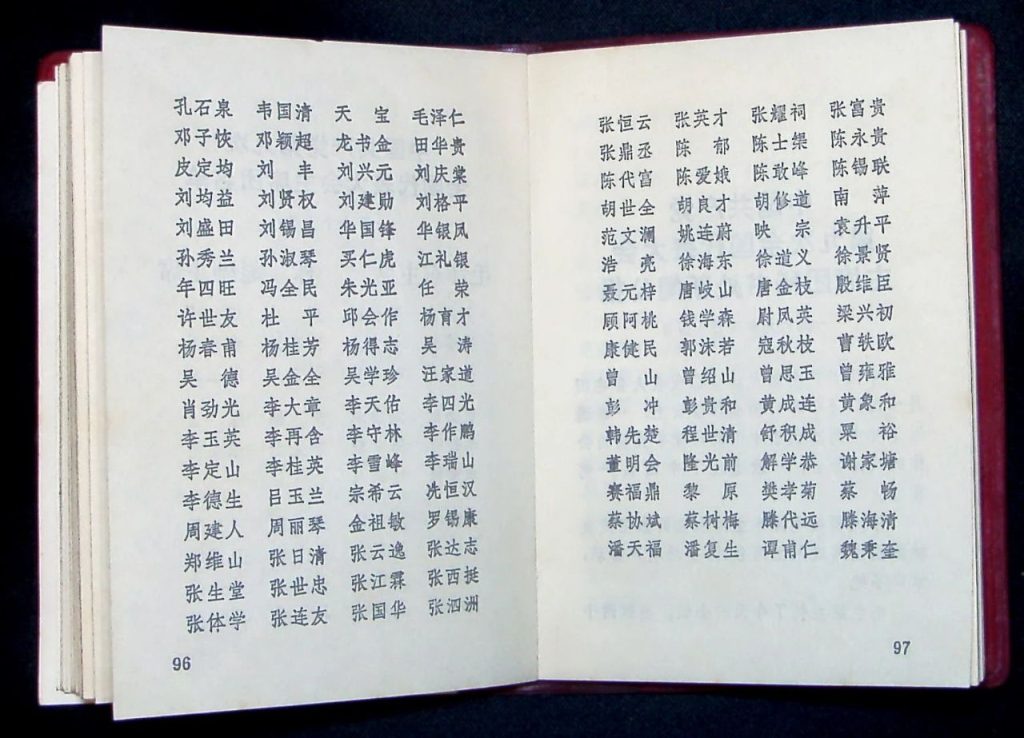 孔石泉 韦国清 天 宝 毛泽仁
邓子恢 邓颖超 龙书金 田华贵
皮定均 刘 丰 刘兴元 刘庆棠
刘均益 刘贤权 刘建勋 刘格平
刘盛田 刘锡昌 华国锋 华银凤
孙秀兰 孙淑琴 买仁虎 江礼银
年四旺 冯全民 朱光亚 任 荣
许世友 杜 平 邱会作 杨育才
杨春甫 杨桂芳 杨得志 吴 涛
吴 德 吴金全 吴学珍 汪家道
肖劲光 李大章 李天佑 李四光
李玉英 李再含 李守林 李作鹏
李定山 李桂英 李雪峰 李瑞山
李德生 吕玉兰 宗希云 冼恒汉
周建人 周丽琴 金祖敏 罗锡康
郑维山 张日清 张云逸 张达志
张生堂 张世忠 张江霖 张西挺
张体学 张连友 张国华 张泗洲
96
张恒云 张英才 张耀祠 张富贵
张鼎丞 陈 郁 陈士榘 陈永贵
陈代富 陈爱娥 陈敢峰 陈锡联
胡世全 胡良才 胡修道 南 萍
范文澜 姚连蔚 映 宗 袁升平
浩 亮 徐海东 徐道义 徐景贤
聂元梓 唐岐山 唐金枝 殷维臣
顾阿桃 钱学森 尉凤英 梁兴初
康健民 郭沫若 寇秋枝 曹轶欧
曾 山 曾绍山 曾思玉 曾雍雅
彭 冲 彭贵和 黄成连 黄象和
韩先楚 程世清 舒积成 粟 裕
董明会 隆光前 解学恭 谢家塘
赛福鼎 黎 原 樊孝菊 蔡 畅
蔡协斌 蔡树梅 滕代远 滕海清
潘天福 潘复生 谭甫仁 魏秉奎
97